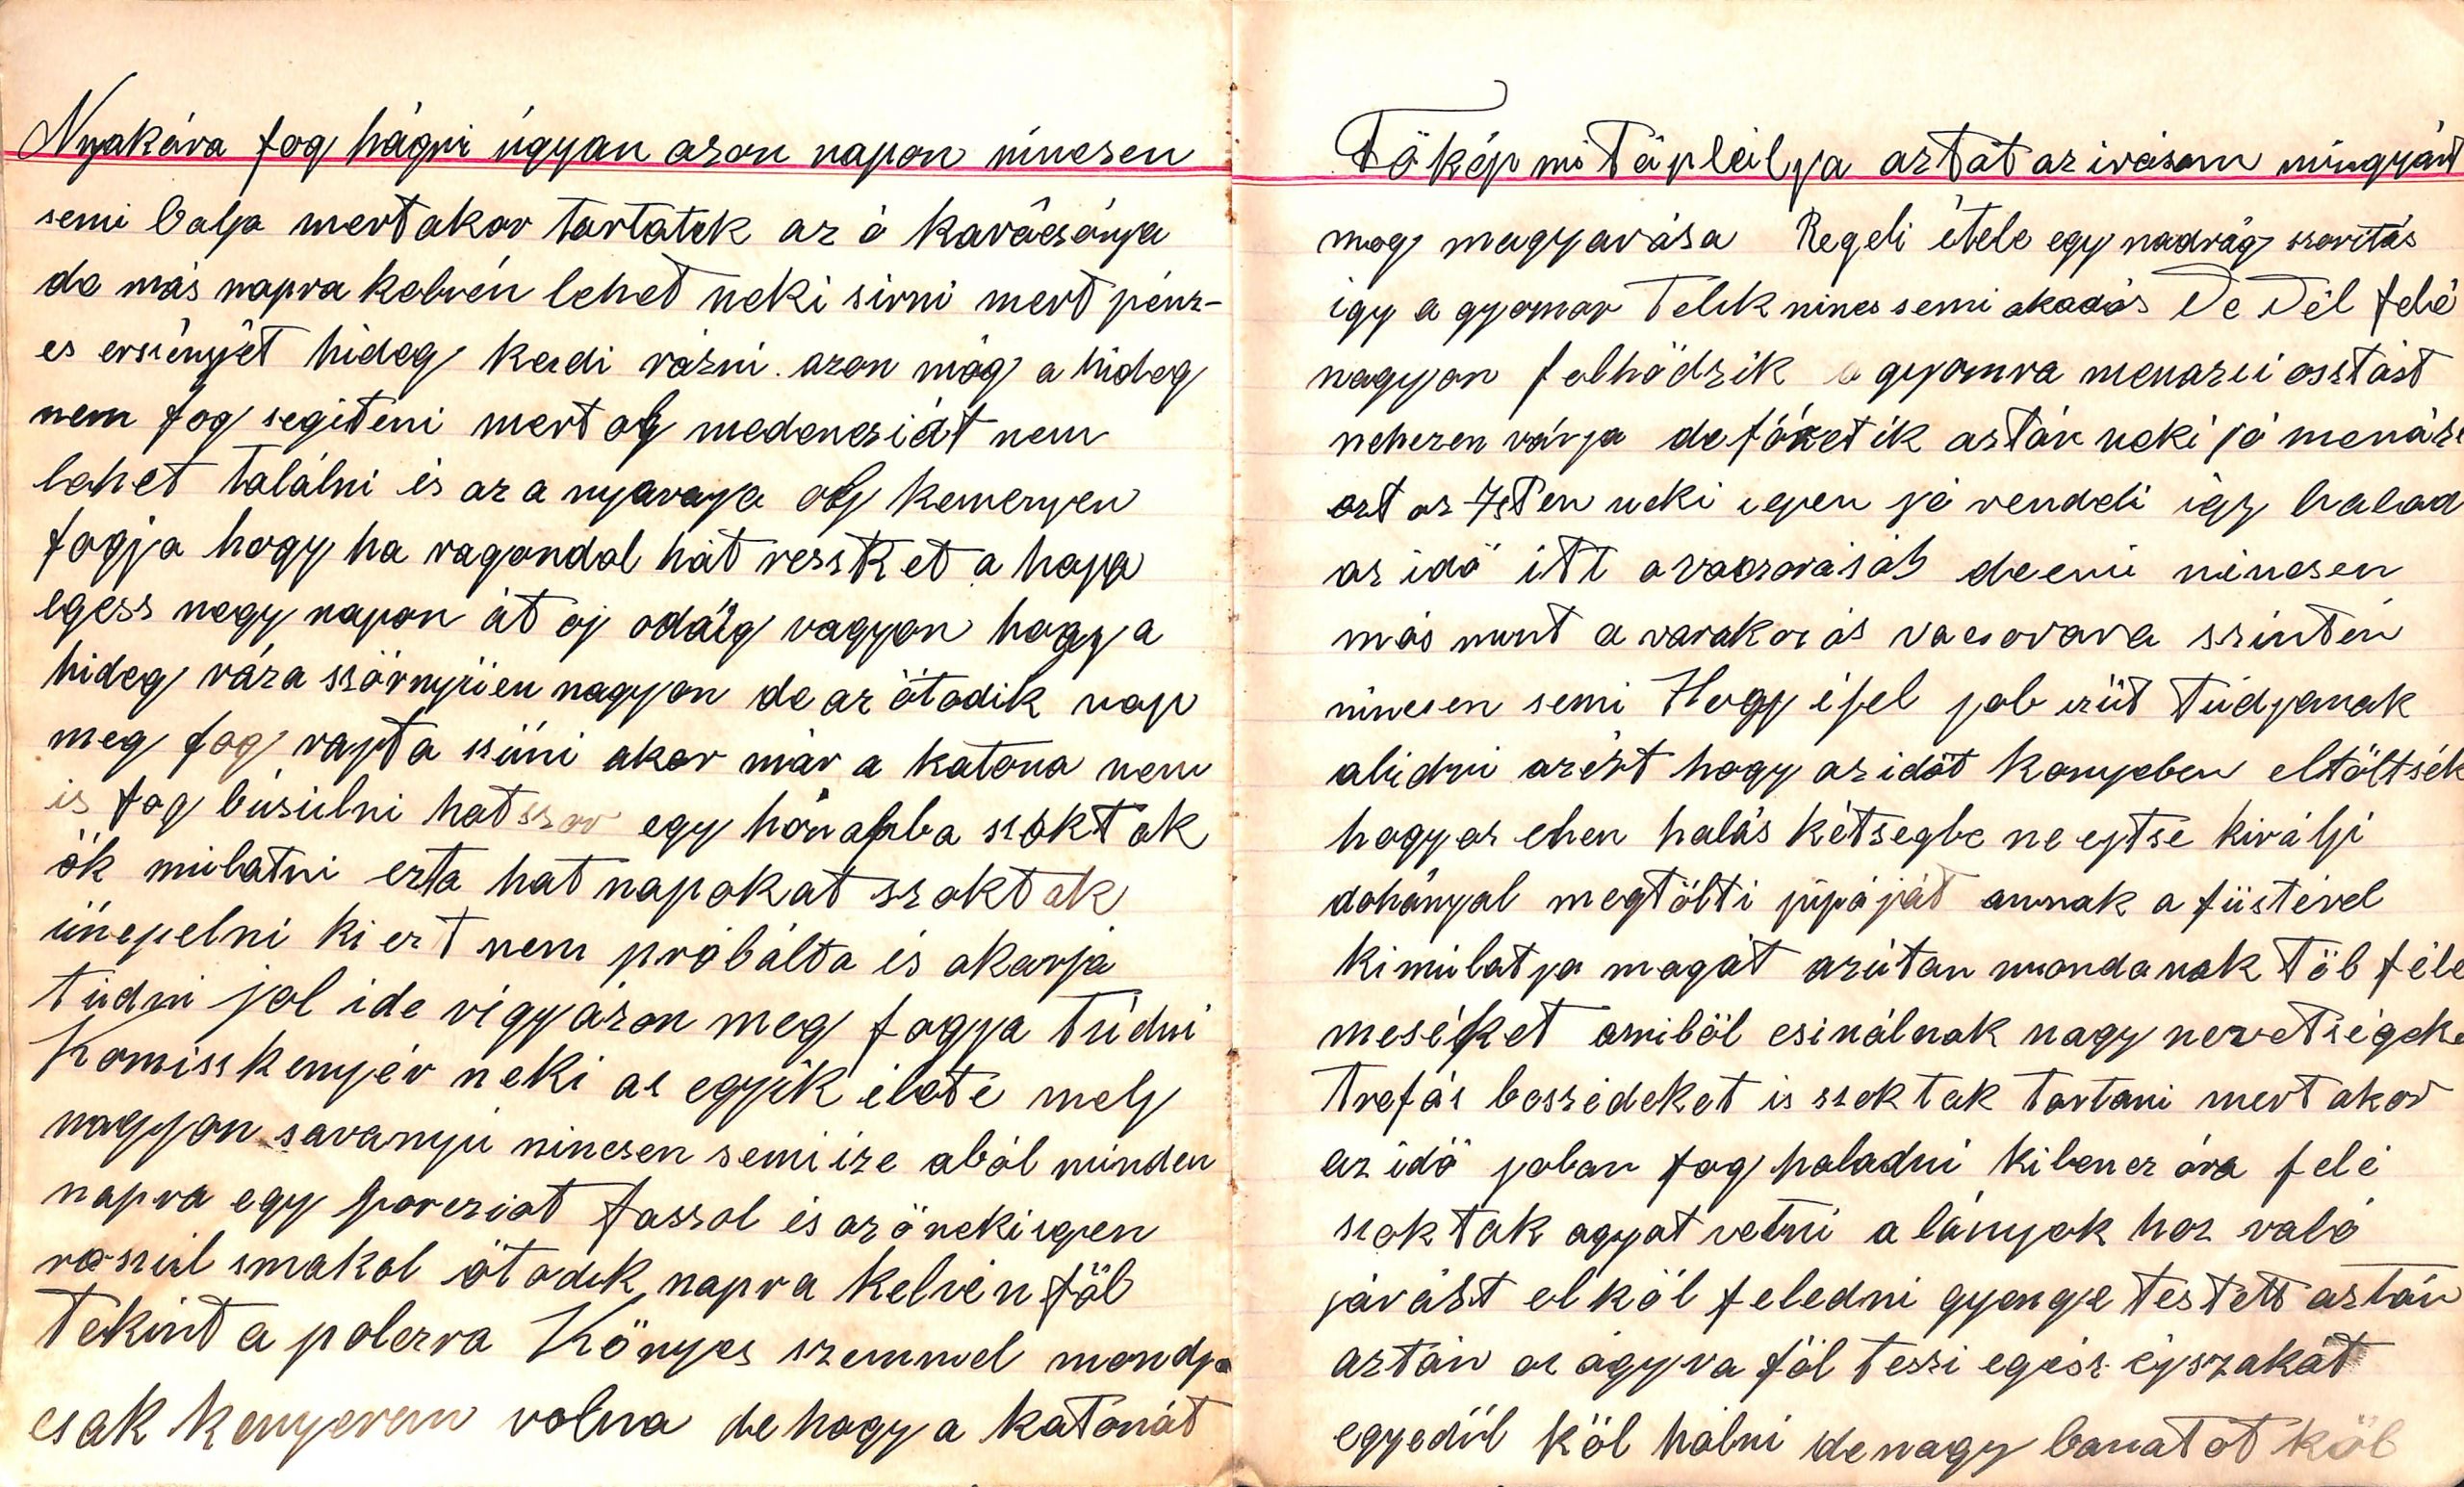 Nyakára fog hágni úgyan azon napon nincsen
semi balya mert akor tartatik az ő karácsónya
de más napra kelvén lehet neki sirni mert pénz-
es erszényét hideg kezdi rázni azon még a hideg
nem fog segiteni mert oly medenczját nem
lehet találni és az a nyavaya oly kemenyen
fogja hogy ha ragondol hát reszket a haja
egess negy napon át oj odáig vagyon hogy a
hideg ráza szörnyüen nagyon de az ötödik nap
meg fog rajta szüni akor már a katona nem
is fog búsúlni hatszor egy hónapba szoktak
ők múlatni ezta hat napokat szoktak
ünepelni ki ezt nem próbálta és akarja
túdni jol ide vigyázon meg fogya túdni
Komisskenyér neki az egyik élete mely
nagyon savanyú nincsen semi ize aból minden
napra egy porcziot fassol és az ő neki igen
rosszúl smakol ötödik napra kelvén föl
tekint a polczra Könyes szemmel mondja
csak kenyerem volna de hogy a katonát
Főkép mi táplálja aztat az irásom mingyárt
meg magyarása Regeli étele egy nadrág szoritás
igy a gyomor telik nincs semi akadás De Dél felé
nagyon felhödzik a gyomra menazsi osztást
nehezen várja de főzetik aztán neki jó menázsi
azt az Isten neki igen jó rendeli igy halad
az idő itt a vacsorásás deenni nincsen
más mint a varakozás vacsorara szintén
nincsen semi Hogy éjel job izüt túdjanak
alúdni azért hogy az időt konyeben eltöltsék
hogy az ehen halás kétségbe ne ejtse királyi
dohányal megtölti pipáját annak a füstével
ki múlatja magát azútan mondanak töb féle
meséket amiből csinálnak nagy nevetségeke
trefás beszédeket is szoktak tartani mert akor
az idő joban fog haladni kilencz óra felé
szoktak agyat vetni a lányok hoz való
járást el köl feledni gyenge testett aztán
aztán az ágyra föl teszi egész éjszakát
egyedül köl hálni denagy banatot köl